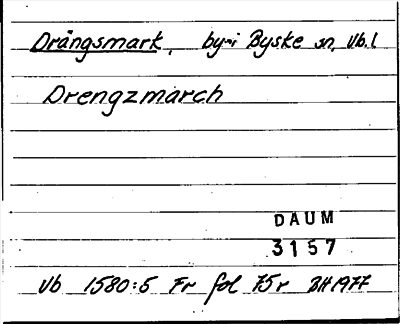 Drängsmark, by i Byske sn, Vb. l
Drengzmarch
DAUM
3157
Vb 1580:5 Fr fol 75r BH 1977